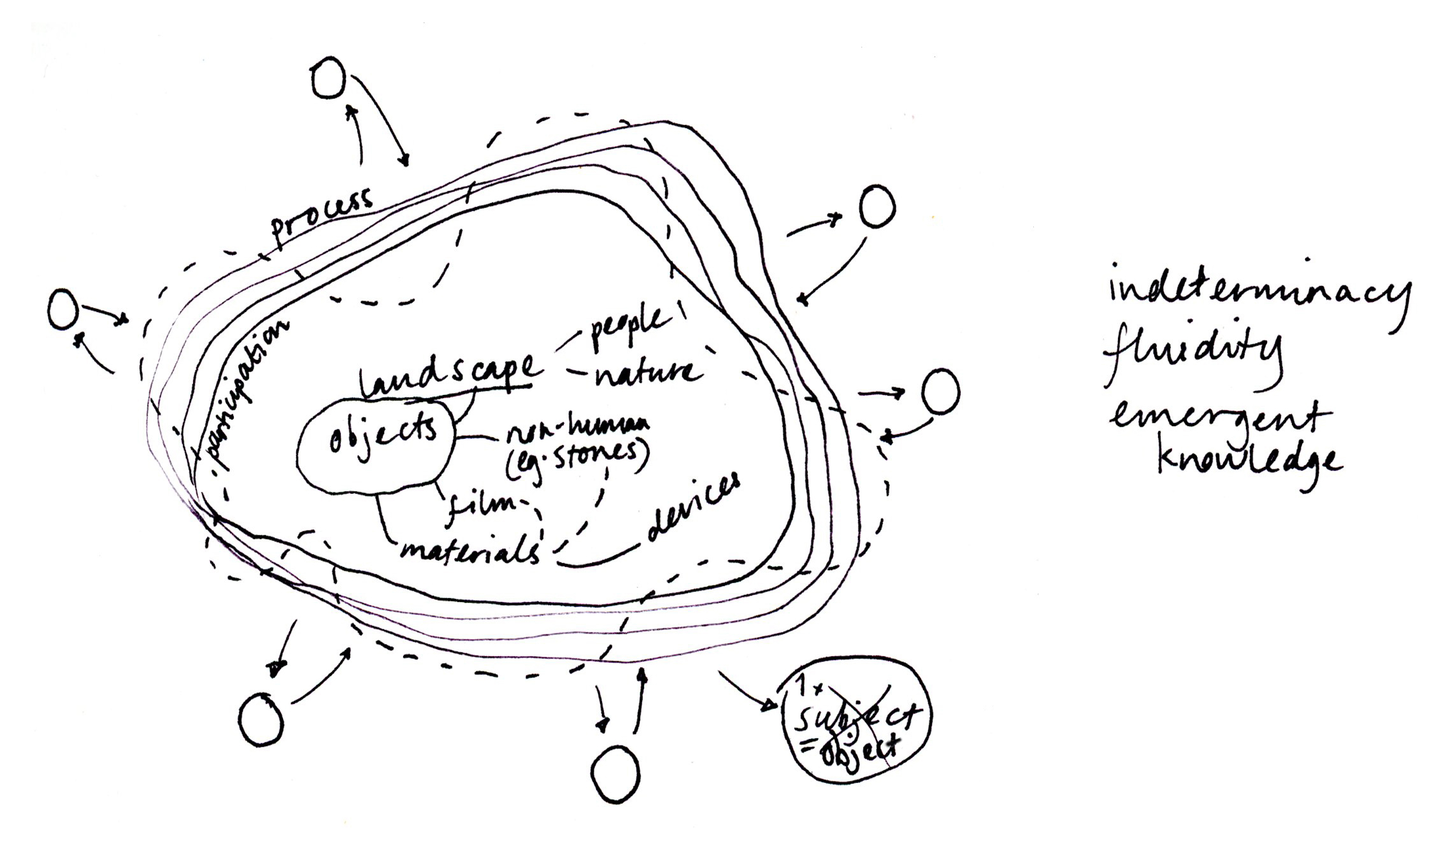 process
participation
landscape
people
nature
objects
non-human
(eg. stones)
film
materials
devices
1x
subject
= object
indeterminacy
fluidity
emergent
knowledge